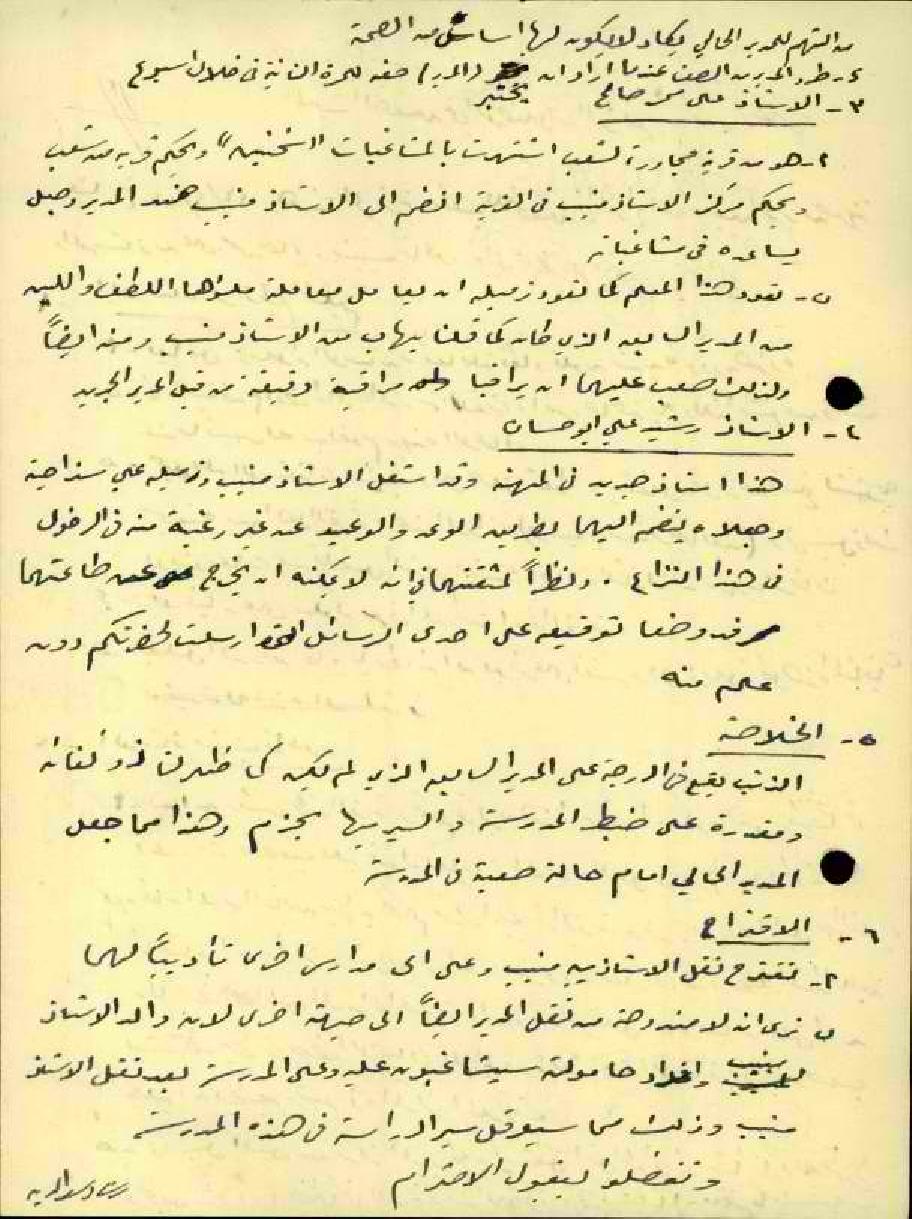 من التهم للمدير الحالي يكاد لا يكون لها اساس من الصحة
طرد المدير من الصف عندما اراد ان يختبر (المدير) صفه للمرة الثانية في خلال اسبوع
٣- الاستاذ علي صالح
١- هو من قرية مجاورة لشعب اشتهرت بالمشاغبات "سخنين" وبحكم قربه من شعب
وبحكم مركز الاستاذ منيب في القرية انضم الى الاستاذ منيب ضد المدير وجعل
يساعده في مشاغباته
ب- تعود هذا المعلم كما تعود زميله ان يعامل معاملة ملؤها اللطف واللين
من المدير السابق الذي كان كما قلنا يهاب من الاستاذ منيب ومنه ايضاً
ولذلك صعب عليهما ان يراقبا مراقبة دقيقة من قبل المدير الجديد
٤- الاستاذ رشيد علي ابو حسان
هذا استاذ جديد في المهنة وقد استغل الاستاذ منيب وزميله علي سذاجته
وجعلاه ينضم اليهما بطريق الوعد والوعيد عن غير رغبة منه في الدخول
في هذا النزاع . ونظراً لثقتهما في انه لا يمكنه ان يخرج عن طاعتهما
فقد وضعا توقيعه على احدى الرسائل التي ارسلت لحضرتكم دون
علم منه
٥- الخلاصة
الذنب يقع في الدرجة على المدير السابق الذي لم يكن كما ظهر لنا ذو كفائه
ومقدرة على ضبط المدرسة والسير بها بحزم وهذا مما جعل
المدير الحالي امام حالة صعبة في المدرسة
٦- الاقتراح
١- نقترح نقل الاستاذين منيب وعلي الى مدارس اخرى تأديباً لهما
ب نرى انه لا مندوحة من نقل المدير ايضاً الى جهة اخرى لان والد الاستاذ
منيب وافراد حامولته سيشاغبون عليه وعلى المدرسة بعد نقل الاستاذ
منيب وذلك مما سيعرقل سير الدراسة في هذه المدرسة
وتفضلوا بقبول الاحترام